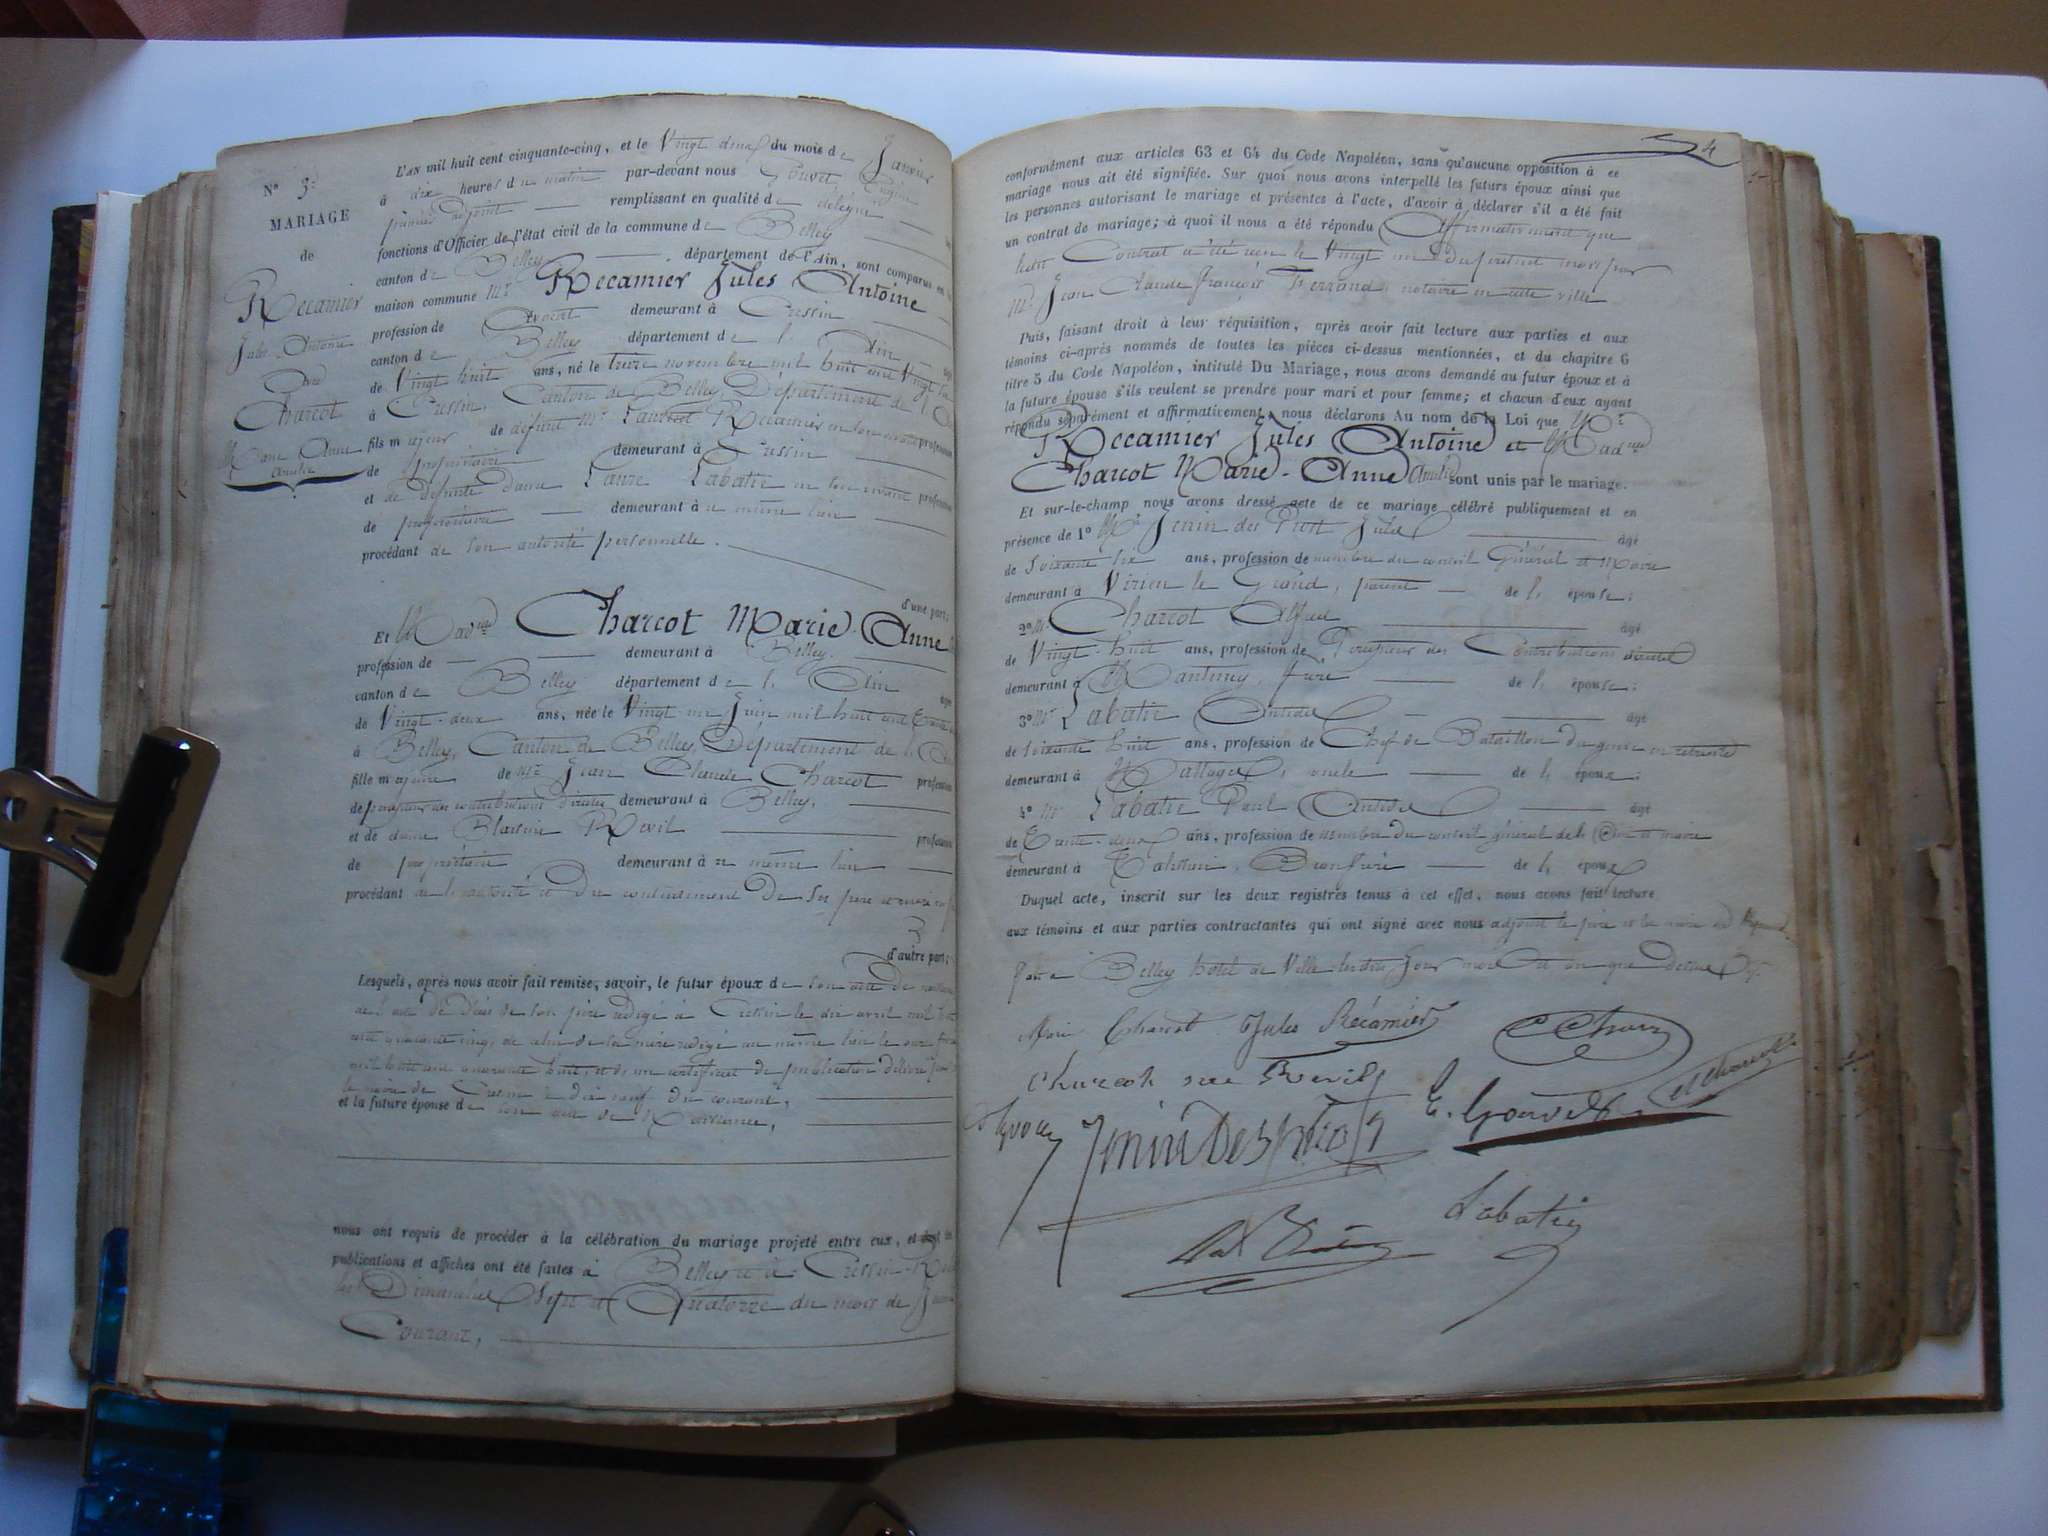 N° 3
MARIAGE
de
Recamier
Jules Antoine
Charcot
Anne
Amélie
L'AN mil huit cent cinquante-cinq, et le Vingt deux du mois de Janvier
à dix heures du matin par-devant nous Gouvet, Eugène
premier adjoint remplissant en qualité de délégué
fonctions d'Officier de l'état civil de la commune de Belley
canton de Belley, département de l'Ain, sont comparus en
maison commune Mr Recamier Jules Antoine
profession de Avocat demeurant à Cressin
canton de Belley département de l' Ain
de Vingt huit ans, né le treize novembre mil huit cent Vingt
à Cressin, Canton de Belley, Département de l'
fils majeur de défunt Mr Recamier en son vivant profession
de propriétaire demeurant à Cressin
et de défunte dame Laure Labatie en son vivant profession
de propriétaire demeurant à même lieu
procédant de son autorité personnelle.
d'une part;
Et Madlle Charcot Marie-Anne
profession de demeurant à Belley.
canton de Belley département de l' Ain âgée
de Vingt-deux ans, née le Vingt un Juin mil huit cent
à Belley, Canton de Belley, Département de l'
fille majeure de Mr Jean Claude Charcot profession
de percepteur des contributions directes demeurant à Belley,
et de dame Revil profession
de propriétaire demeurant à même lieu
procédant de l'autorité et du consentement de ses père et mère
d'autre part;
Lesquels, après nous avoir fait remise, savoir, le futur époux de son acte de
de l'acte de décès de son père rédigé à Cressin le dix avril mil
cent quarante cinq, de celui de sa mère rédigé au même lieu le onze
mil huit cent quarante huit, et d'un certificat de publication délivré
le maire de Cressin le dix neuf du courant,
et la future épouse de son acte de Naissance,
nous ont requis de procéder à la célébration du mariage projeté entre eux, et dont les
publications et affiches ont été faites à Belley et à Cressin
les Dimanches Sept et Quatorze du mois de
Courant,
4
conformément aux articles 63 et 64 du Code Napoléon, sans qu'aucune opposition à ce
mariage nous ait été signifiée. Sur quoi nous avons interpellé les futurs époux ainsi que
les personnes autorisant le mariage et présentes à l'acte, d'avoir à déclarer s'il a été fait
un contrat de mariage; à quoi il nous a été répondu Affirmativement que
ledit Contrat a été reçu le Vingt un du présent mois par
Me Jean Claude François Ferrand notaire en cette ville
Puis, faisant droit à leur réquisition, après avoir fait lecture aux parties et aux
témoins ci-après nommés de toutes les pièces ci-dessus mentionnées, et du chapitre 6
titre 5 du Code Napoléon, intitulé Du Mariage, nous avons demandé au futur époux et à
la future épouse s'ils veulent se prendre pour mari et pour femme; et chacun d'eux ayant
répondu séparément et affirmativement, nous déclarons Au nom de la Loi que Mr
Recamier Jules Antoine et Madlle
Charcot Marie-Anne Amélie sont unis par le mariage.
Et sur-le-champ nous avons dressé acte de ce mariage célébré publiquement et en
présence de 1° Mr Jenin des Prost Jules âgé
de Soixante six ans, profession de membre du conseil Général et Maire
demeurant à Virieu le Grand, parent de l' épouse;
2° Mr Charcot Alfred âgé
de Vingt-huit ans, profession de Percepteur des Contributions directes
demeurant à frère de l' épouse;
3° Mr Labatie Antide âgé
de soixante huit ans, profession de Chef de Bataillon du génie en retraite
demeurant à oncle de l' époux;
4° Mr Labatie Paul Antide âgé
de Trente-deux ans, profession de membre du conseil général de l'Ain et maire
demeurant à Talissieu, Beaufrère de l' époux
Duquel acte, inscrit sur les deux registres tenus à cet effet, nous avons fait lecture
aux témoins et aux parties contractantes qui ont signé avec nous adjoint le père et la mère de
Fait à Belley hôtel de Ville lesdits Jour mois et an que dessus
Marie Charcot Jules Récamier
Charcot née Revil
E. Gouvet
Jenin Desprost
Labatie